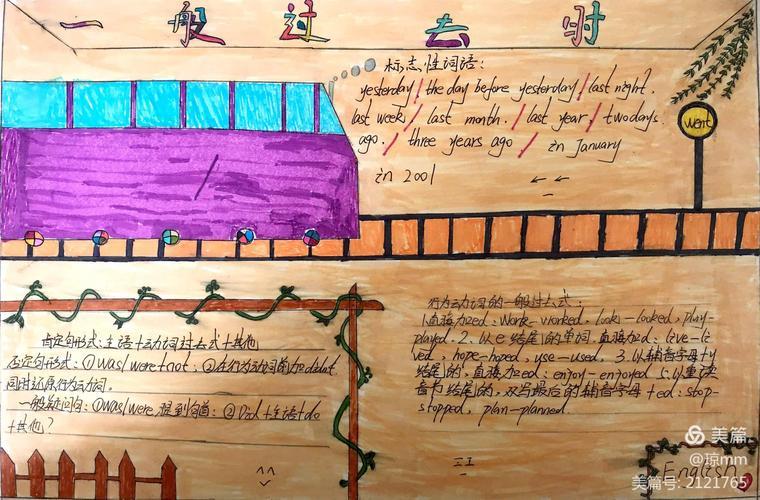 一般过去时
标志性词语:
yesterday / the day before yesterday / last night.
last week / last month. / last year / two days.
ago. / three years ago / in January
in 2001
went
肯定句形式:主语+动词过去式+其他
否定句形式:①was/were+not. ②在行为动词前加didn't
同时还原行为动词.
一般疑问句:①was/were提到句首:②Did+主语+do
+其他?
行为动词的一般过去式:
1.直接加ed: work-worked, look-looked, play-
played. 2.以e结尾的单词,直接加d: live-li-
ved, hope-hoped, use-used. 3.以辅音字母+y
结尾的,直接加ed: enjoy-enjoyed 5.以重读
音节结尾的,双写最后的辅音字母+ed: stop-
stopped, plan-planned.
English
美篇
@琼mm
美篇号: 2121765